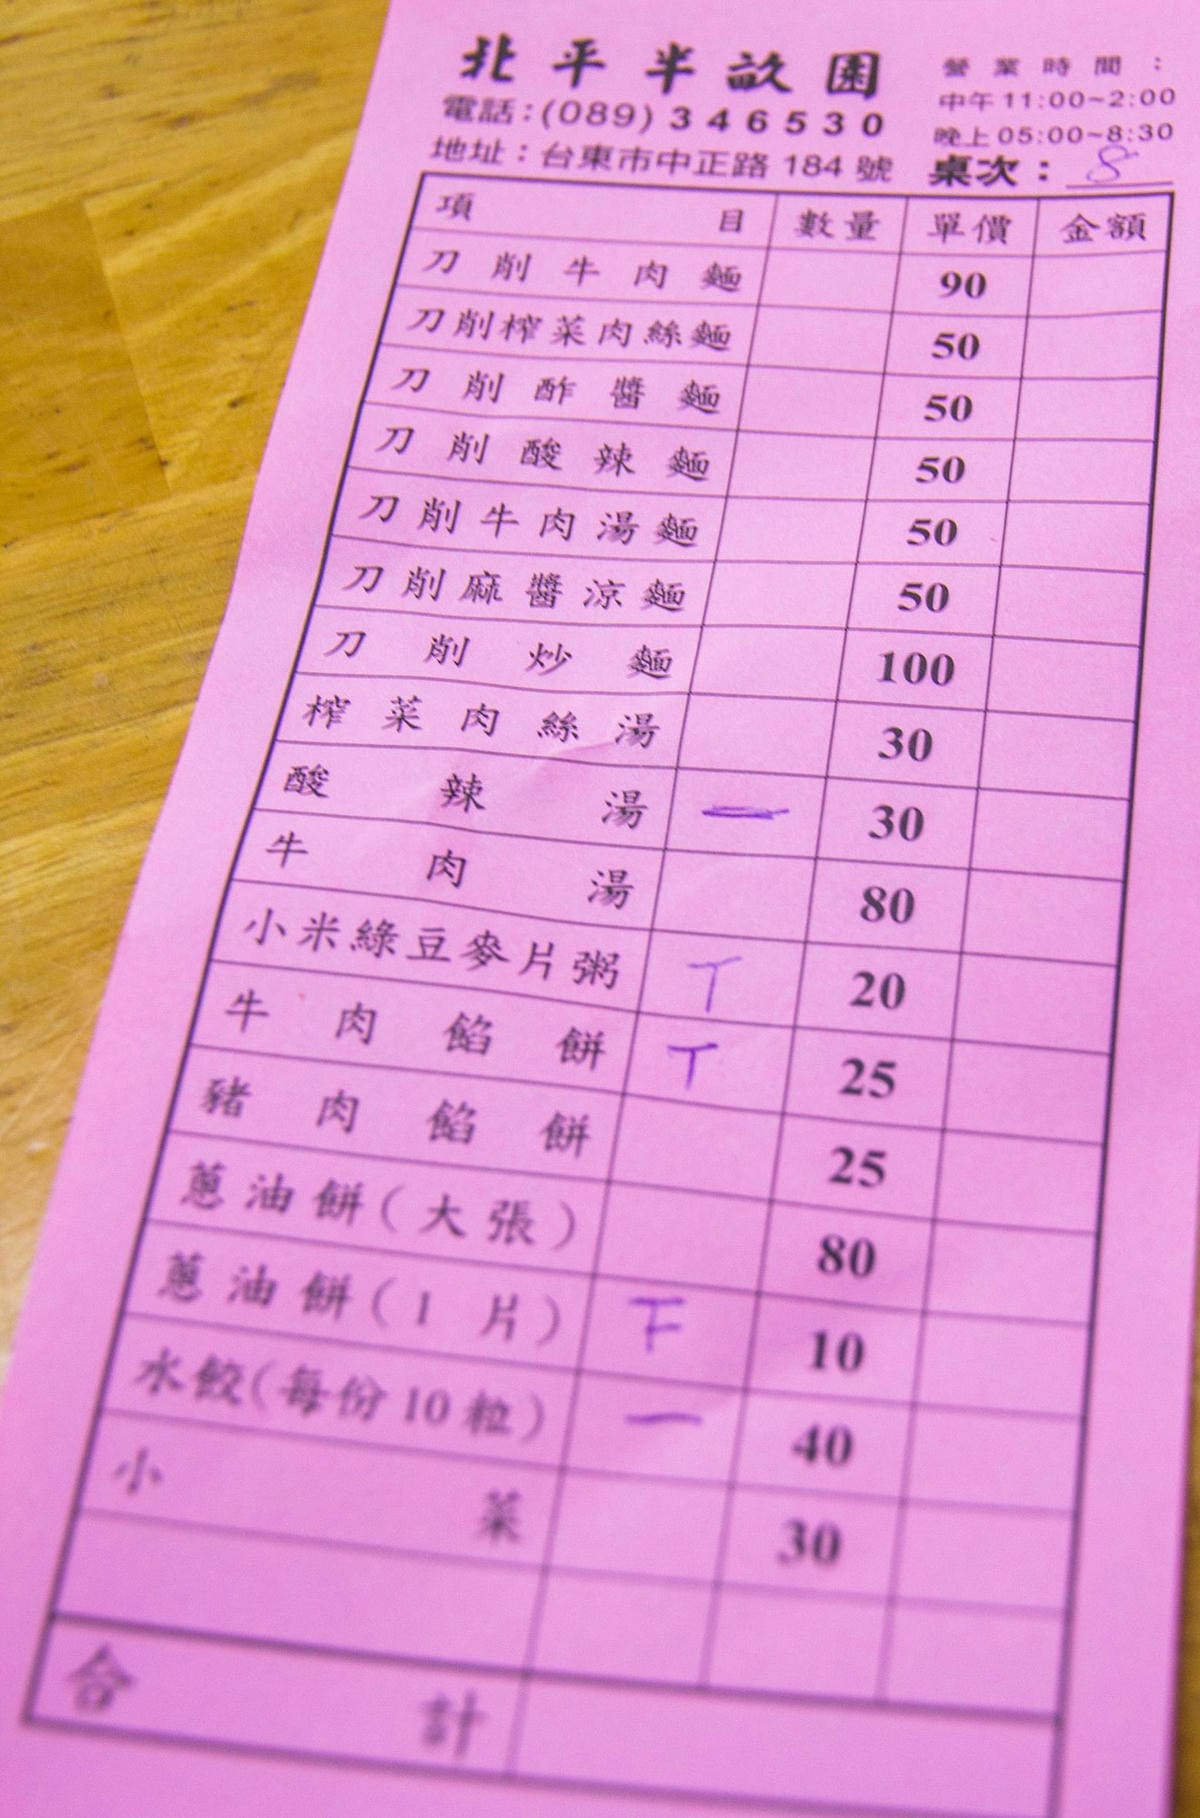 北平半畝園
營業時間：
電話：(089) 346530
中午 11:00~2:00
晚上 05:00~8:30
地址：台東市中正路 184 號
桌次： 8
項目 數量 單價 金額
刀削牛肉麵 90
刀削榨菜肉絲麵 50
刀削酢醬麵 50
刀削酸辣麵 50
刀削牛肉湯麵 50
刀削麻醬涼麵 50
刀削炒麵 100
榨菜肉絲湯 30
酸辣湯 一 30
牛肉湯 80
小米綠豆麥片粥 T 20
牛肉餡餅 T 25
豬肉餡餅 25
蔥油餅(大張) 80
蔥油餅(1 片) F 10
水餃(每份10粒) 一 40
小菜 30
合計